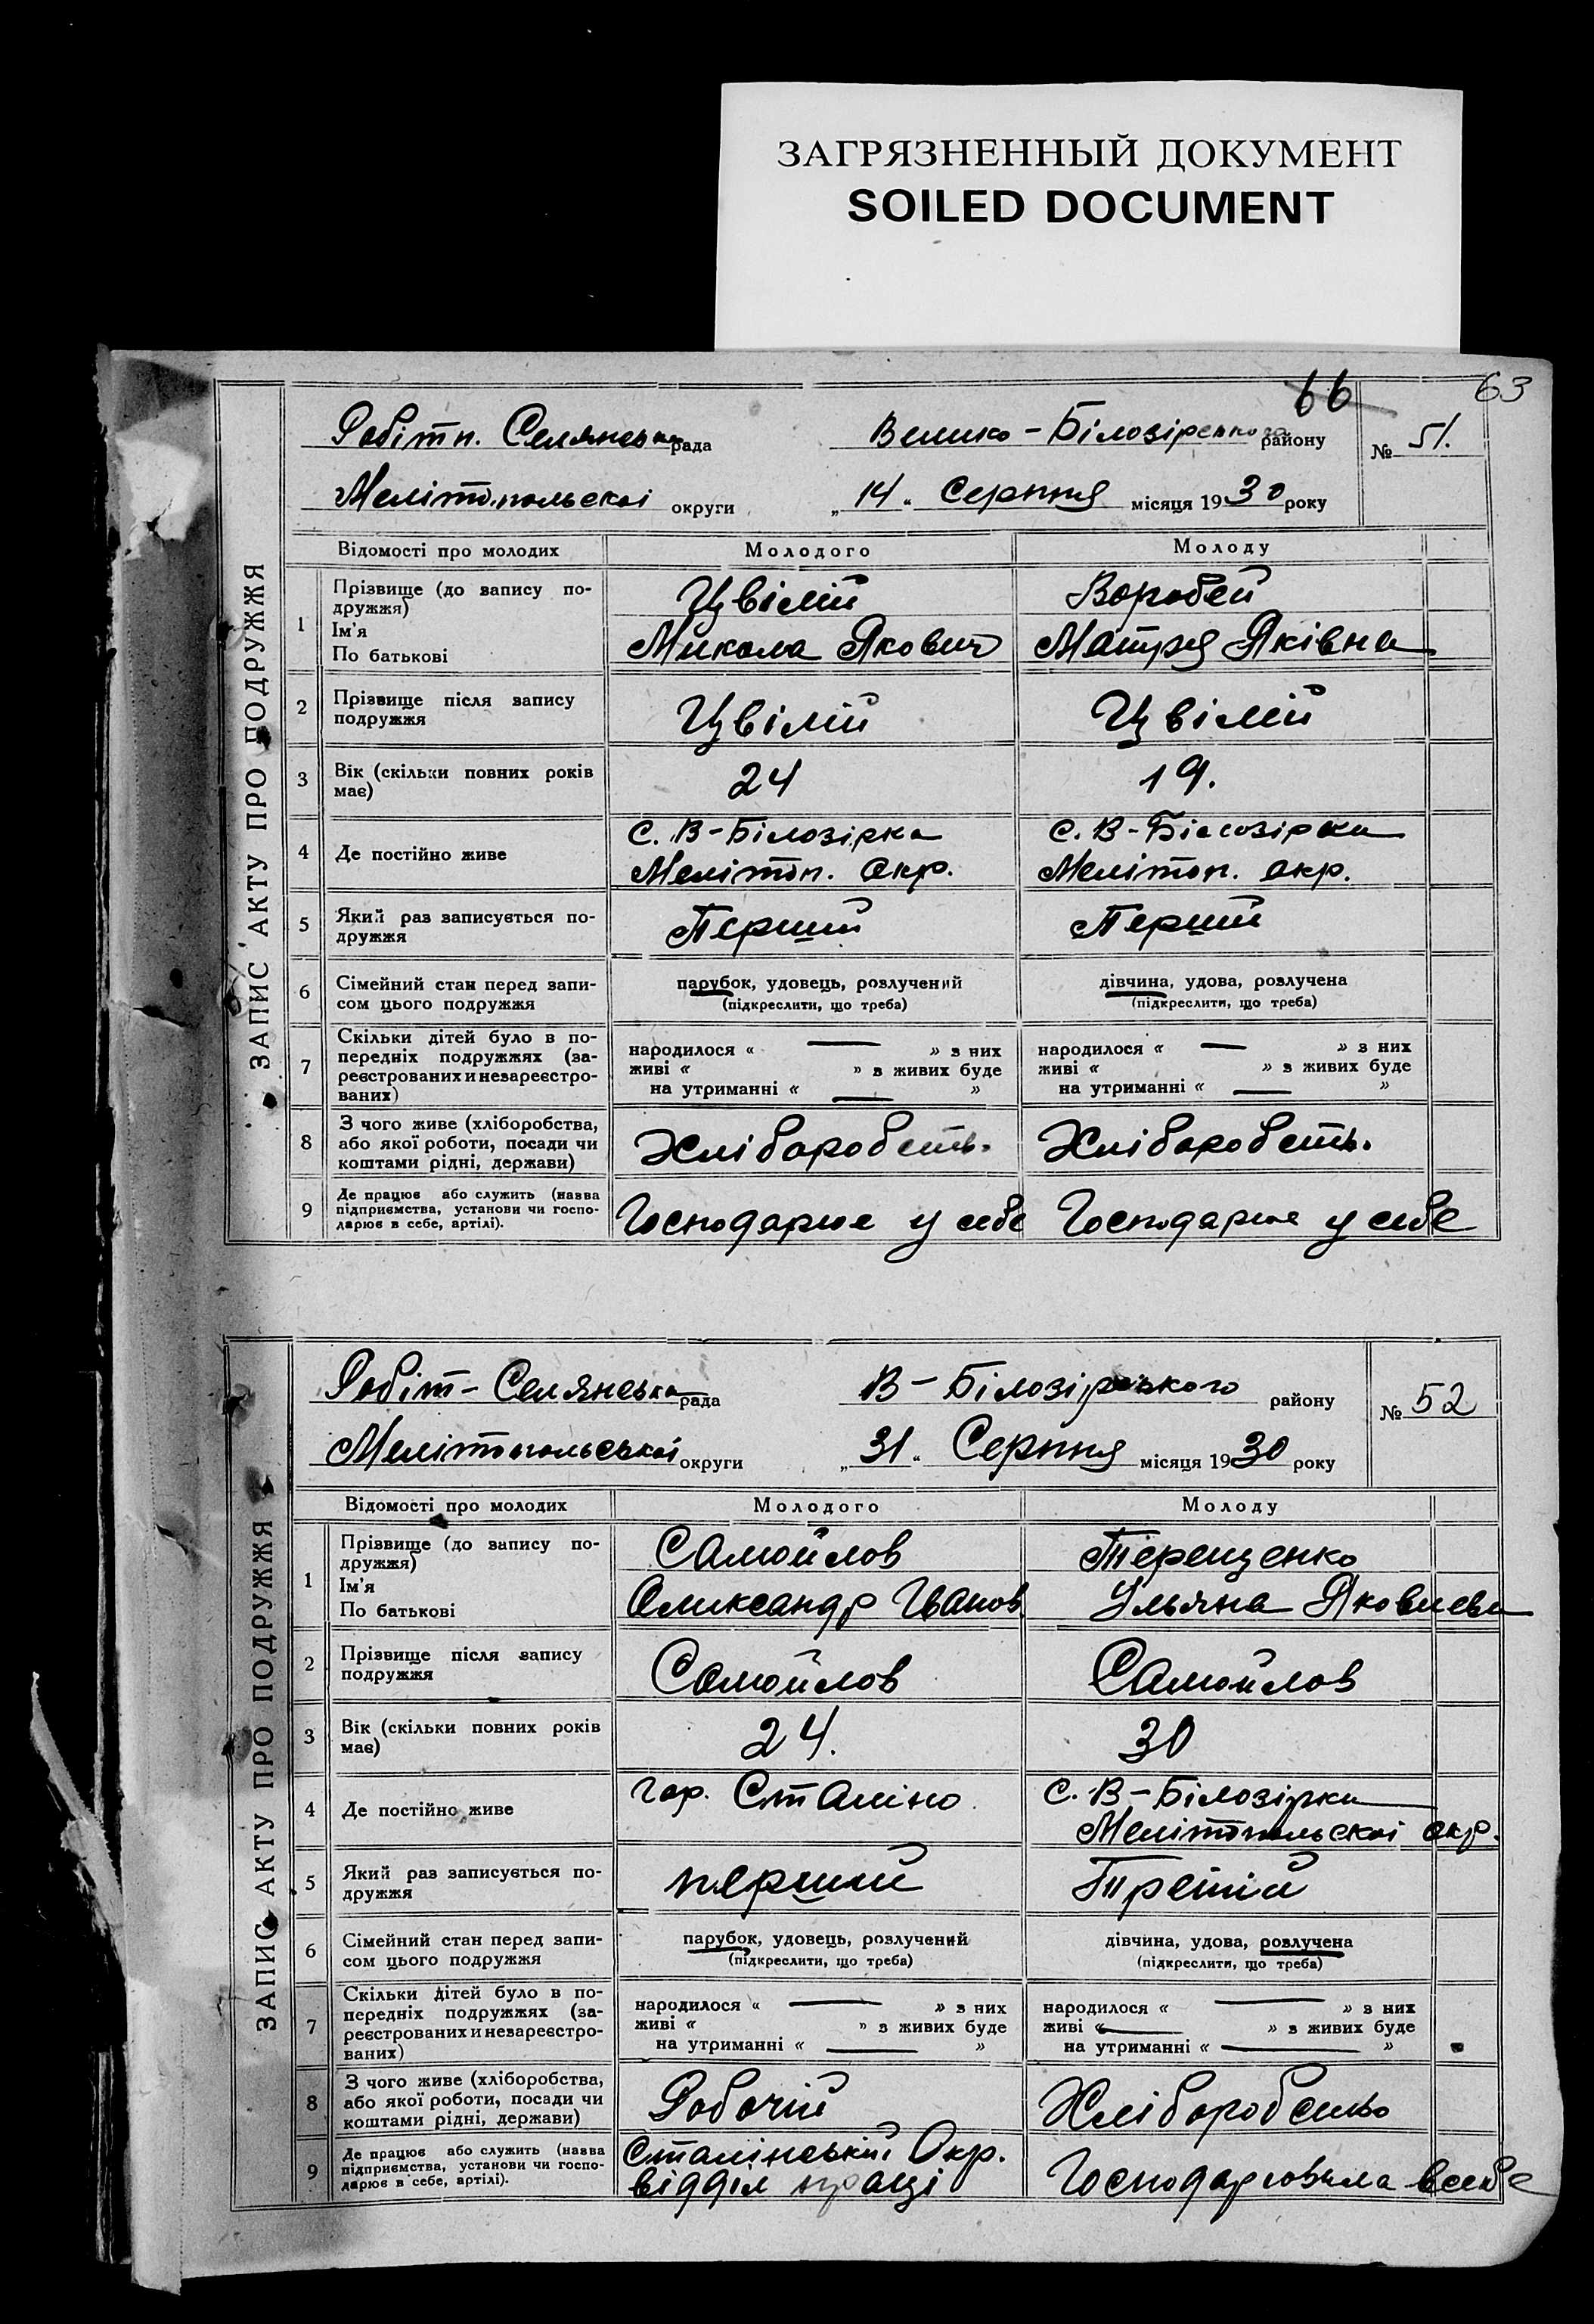 ЗАГРЯЗНЕННЫЙ ДОКУМЕНТ
SOILED DOCUMENT
66 63
ЗАПИС АКТУ ПРО ПОДРУЖЖЯ
Робітн. Селянська рада Велико-Білозірського району № 51.
Мелітопольскої округи „14“ Серпня місяця 1930 року
Відомості про молодих Молодого Молоду
1 Прізвище (до запису по-
дружжя) Цвілій Воробей
Ім'я
По батькові Микола Якович Матря Яківна
2 Прізвище після запису
подружжя Цвілій Цвілій
3 Вік (скільки повних років
має) 24 19.
4 Де постійно живе С. В-Білозірка С. В-Білозірка
Мелітоп. окр. Мелітоп. окр.
5 Який раз записується по-
дружжя Перший Перший
6 Сімейний стан перед запи-
сом цього подружжя
парубок, удовець, розлучений
(підкреслити, що треба)
дівчина, удова, розлучена
(підкреслити, що треба)
7 Скільки дітей було в по-
передніх подружжях (за-
реєстрованих и незареєстро-
ваних)
народилося « — » з них
живі « » з живих буде
на утриманні « — »
народилося « — » з них
живі « » з живих буде
на утриманні « — »
8 З чого живе (хліборобства,
або якої роботи, посади чи
коштами рідні, держави)
Хлібороб сть. Хлібороб сть.
9 Де працює або служить (назва
підприємства, установи чи госпо-
дарює в себе, артілі).
Господарює у себе Господарює у себе
ЗАПИС АКТУ ПРО ПОДРУЖЖЯ
Робіт-Селянська рада В-Білозірського району № 52
Мелітопольської округи „31“ Серпня місяця 1930 року
Відомості про молодих Молодого Молоду
1 Прізвище (до запису по-
дружжя) Самойлов Терещенко
Ім'я
По батькові Олександр Іванов Ульяна Яковлевн
2 Прізвище після запису
подружжя Самойлов Самойлов
3 Вік (скільки повних років
має) 24. 30
4 Де постійно живе гор. Сталіно С. В-Білозірка
Мелітопольскої окр.
5 Який раз записується по-
дружжя перший Третій
6 Сімейний стан перед запи-
сом цього подружжя
парубок, удовець, розлучений
(підкреслити, що треба)
дівчина, удова, розлучена
(підкреслити, що треба)
7 Скільки дітей було в по-
передніх подружжях (за-
реєстрованих и незареєстро-
ваних)
народилося « — » з них
живі « » з живих буде
на утриманні « — »
народилося « — » з них
живі « — » з живих буде
на утриманні « — »
8 З чого живе (хліборобства,
або якої роботи, посади чи
коштами рідні, держави)
Робочій
9 Де працює або служить (назва
підприємства, установи чи госпо-
дарює в себе, артілі).
Сталінський Окр.
відділ праці
Господарювала в себе